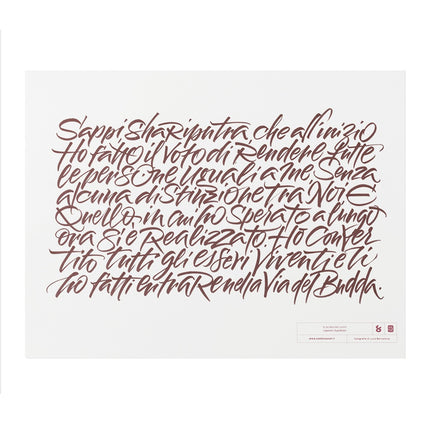 Sappi Shariputra che all'inizio
Ho fatto il voto di Rendere tutte
le persone uguali a me, Senza
alcuna distinzione tra Noi. E
Quello, in cui ho Sperato a lungo
ora S'è Realizzato. Ho conver
tito tutti gli esseri viventi e li
ho fatti entrare nella Via del Budda.